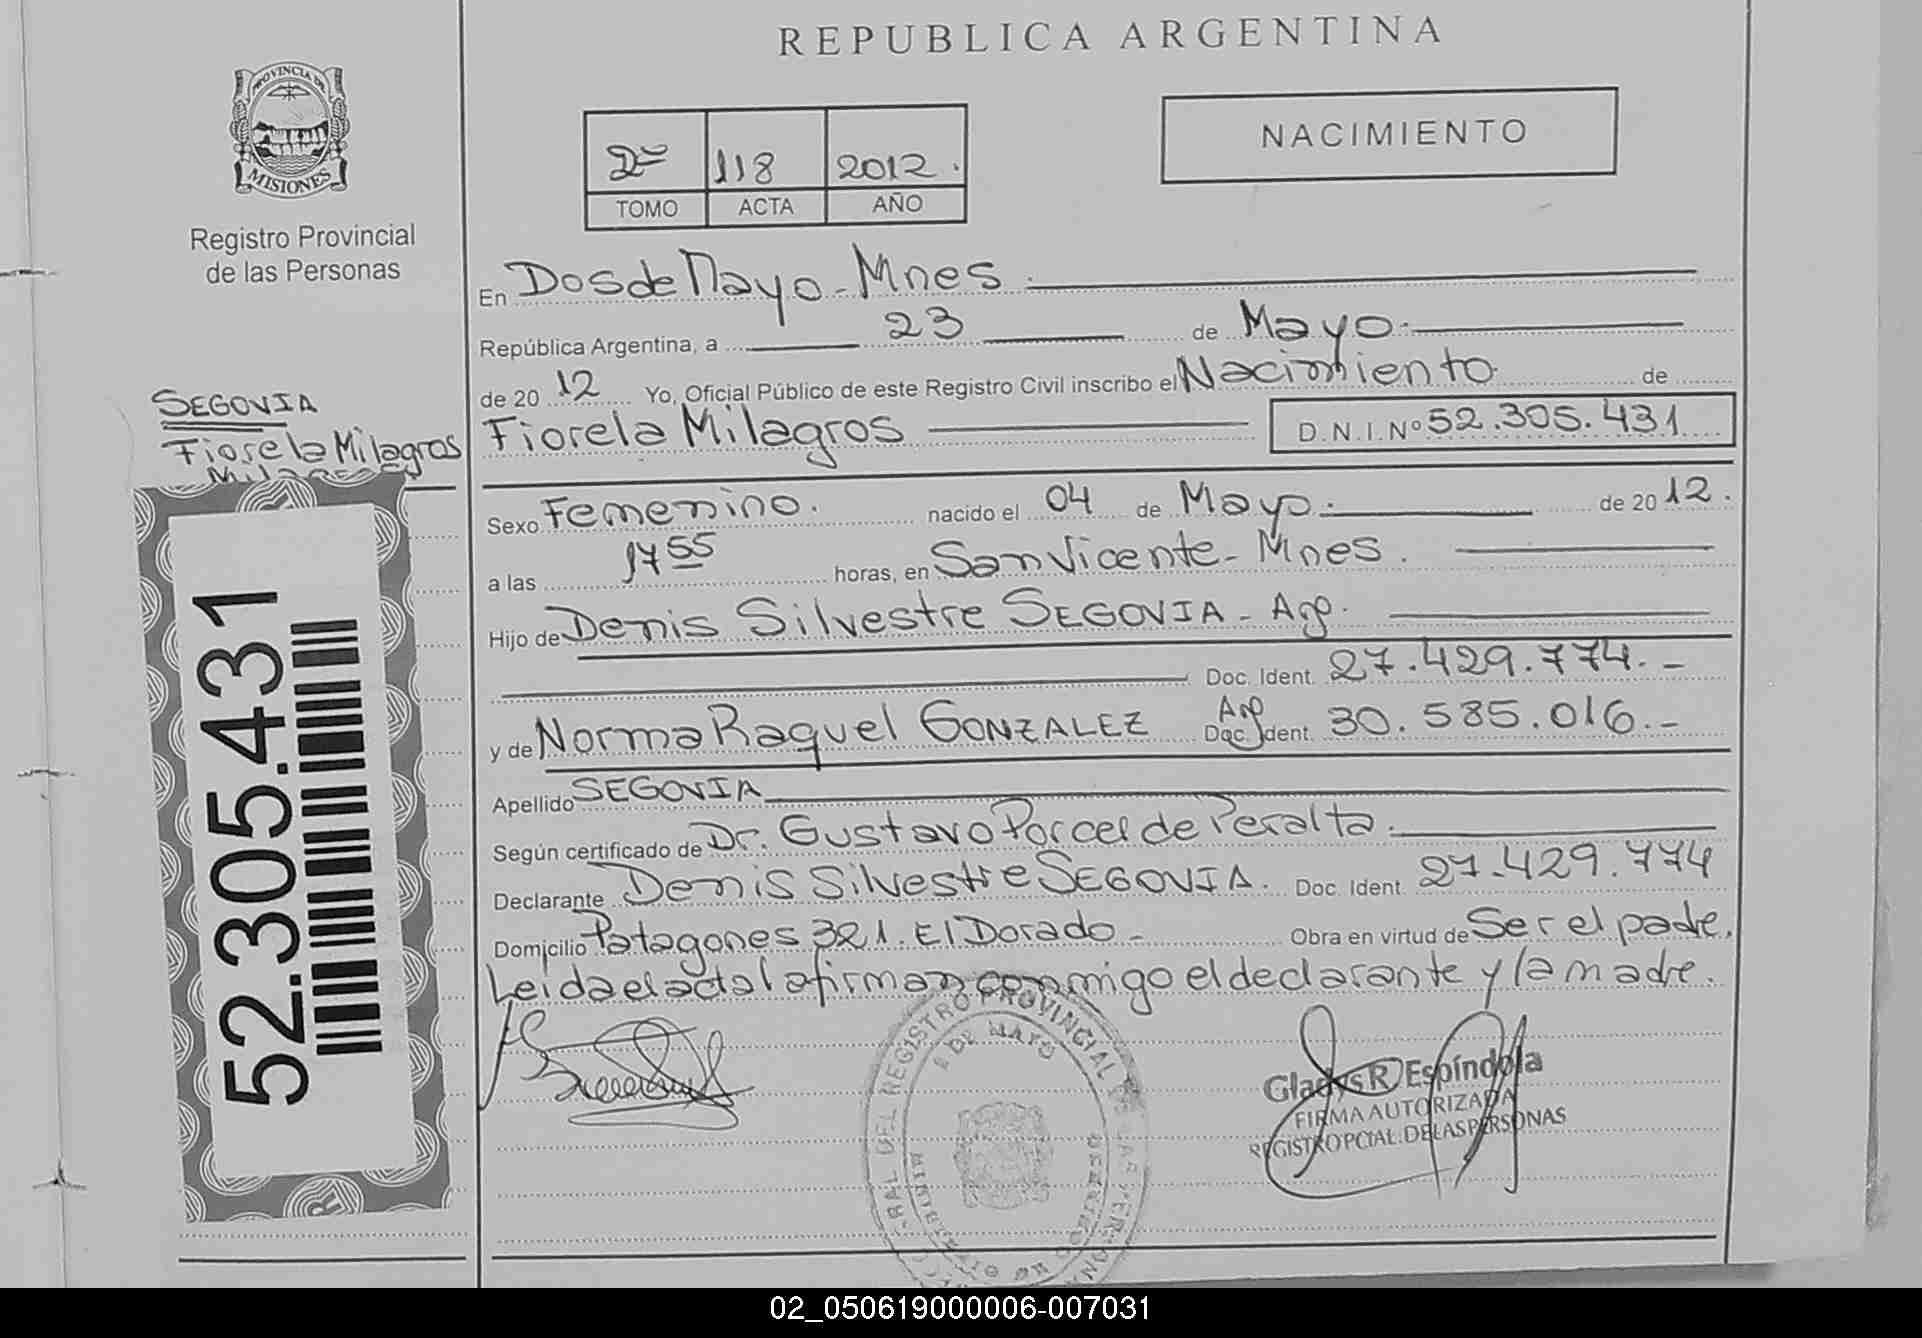 REPUBLICA ARGENTINA
PROVINCIA DE
MISIONES
Registro Provincial
de las Personas
2º 118 2012.
TOMO ACTA AÑO
NACIMIENTO
En Dos de Mayo - Mnes.
República Argentina, a 23 de Mayo.
de 20 12 Yo, Oficial Público de este Registro Civil inscribo el Nacimiento de
Fiorela Milagros D.N.I.Nº 52.305.431
SEGOVIA
Fiorela Milagros
Sexo Femenino. nacido el 04 de Mayo. de 20 12.
a las 17 55 horas, en San Vicente - Mnes.
Hijo de Denis Silvestre SEGOVIA - Arg.
Doc. Ident. 27.429.774.-
y de Norma Raquel GONZALEZ Arg Doc. Ident. 30.585.016.-
Apellido SEGOVIA
Según certificado de Dr. Gustavo Porcel de Peralta.
Declarante Denis Silvestre SEGOVIA. Doc. Ident. 27.429.774
Domicilio Patagones 321. El Dorado - Obra en virtud de Ser el padre.
Leida el acta la firman conmigo el declarante y la madre.
52.305.431
REGISTRO PROVINCIAL DE LAS PERSONAS
2 DE MAYO
Gladys R. Espíndola
FIRMA AUTORIZADA
REGISTRO PCIAL. DE LAS PERSONAS
02_050619000006-007031